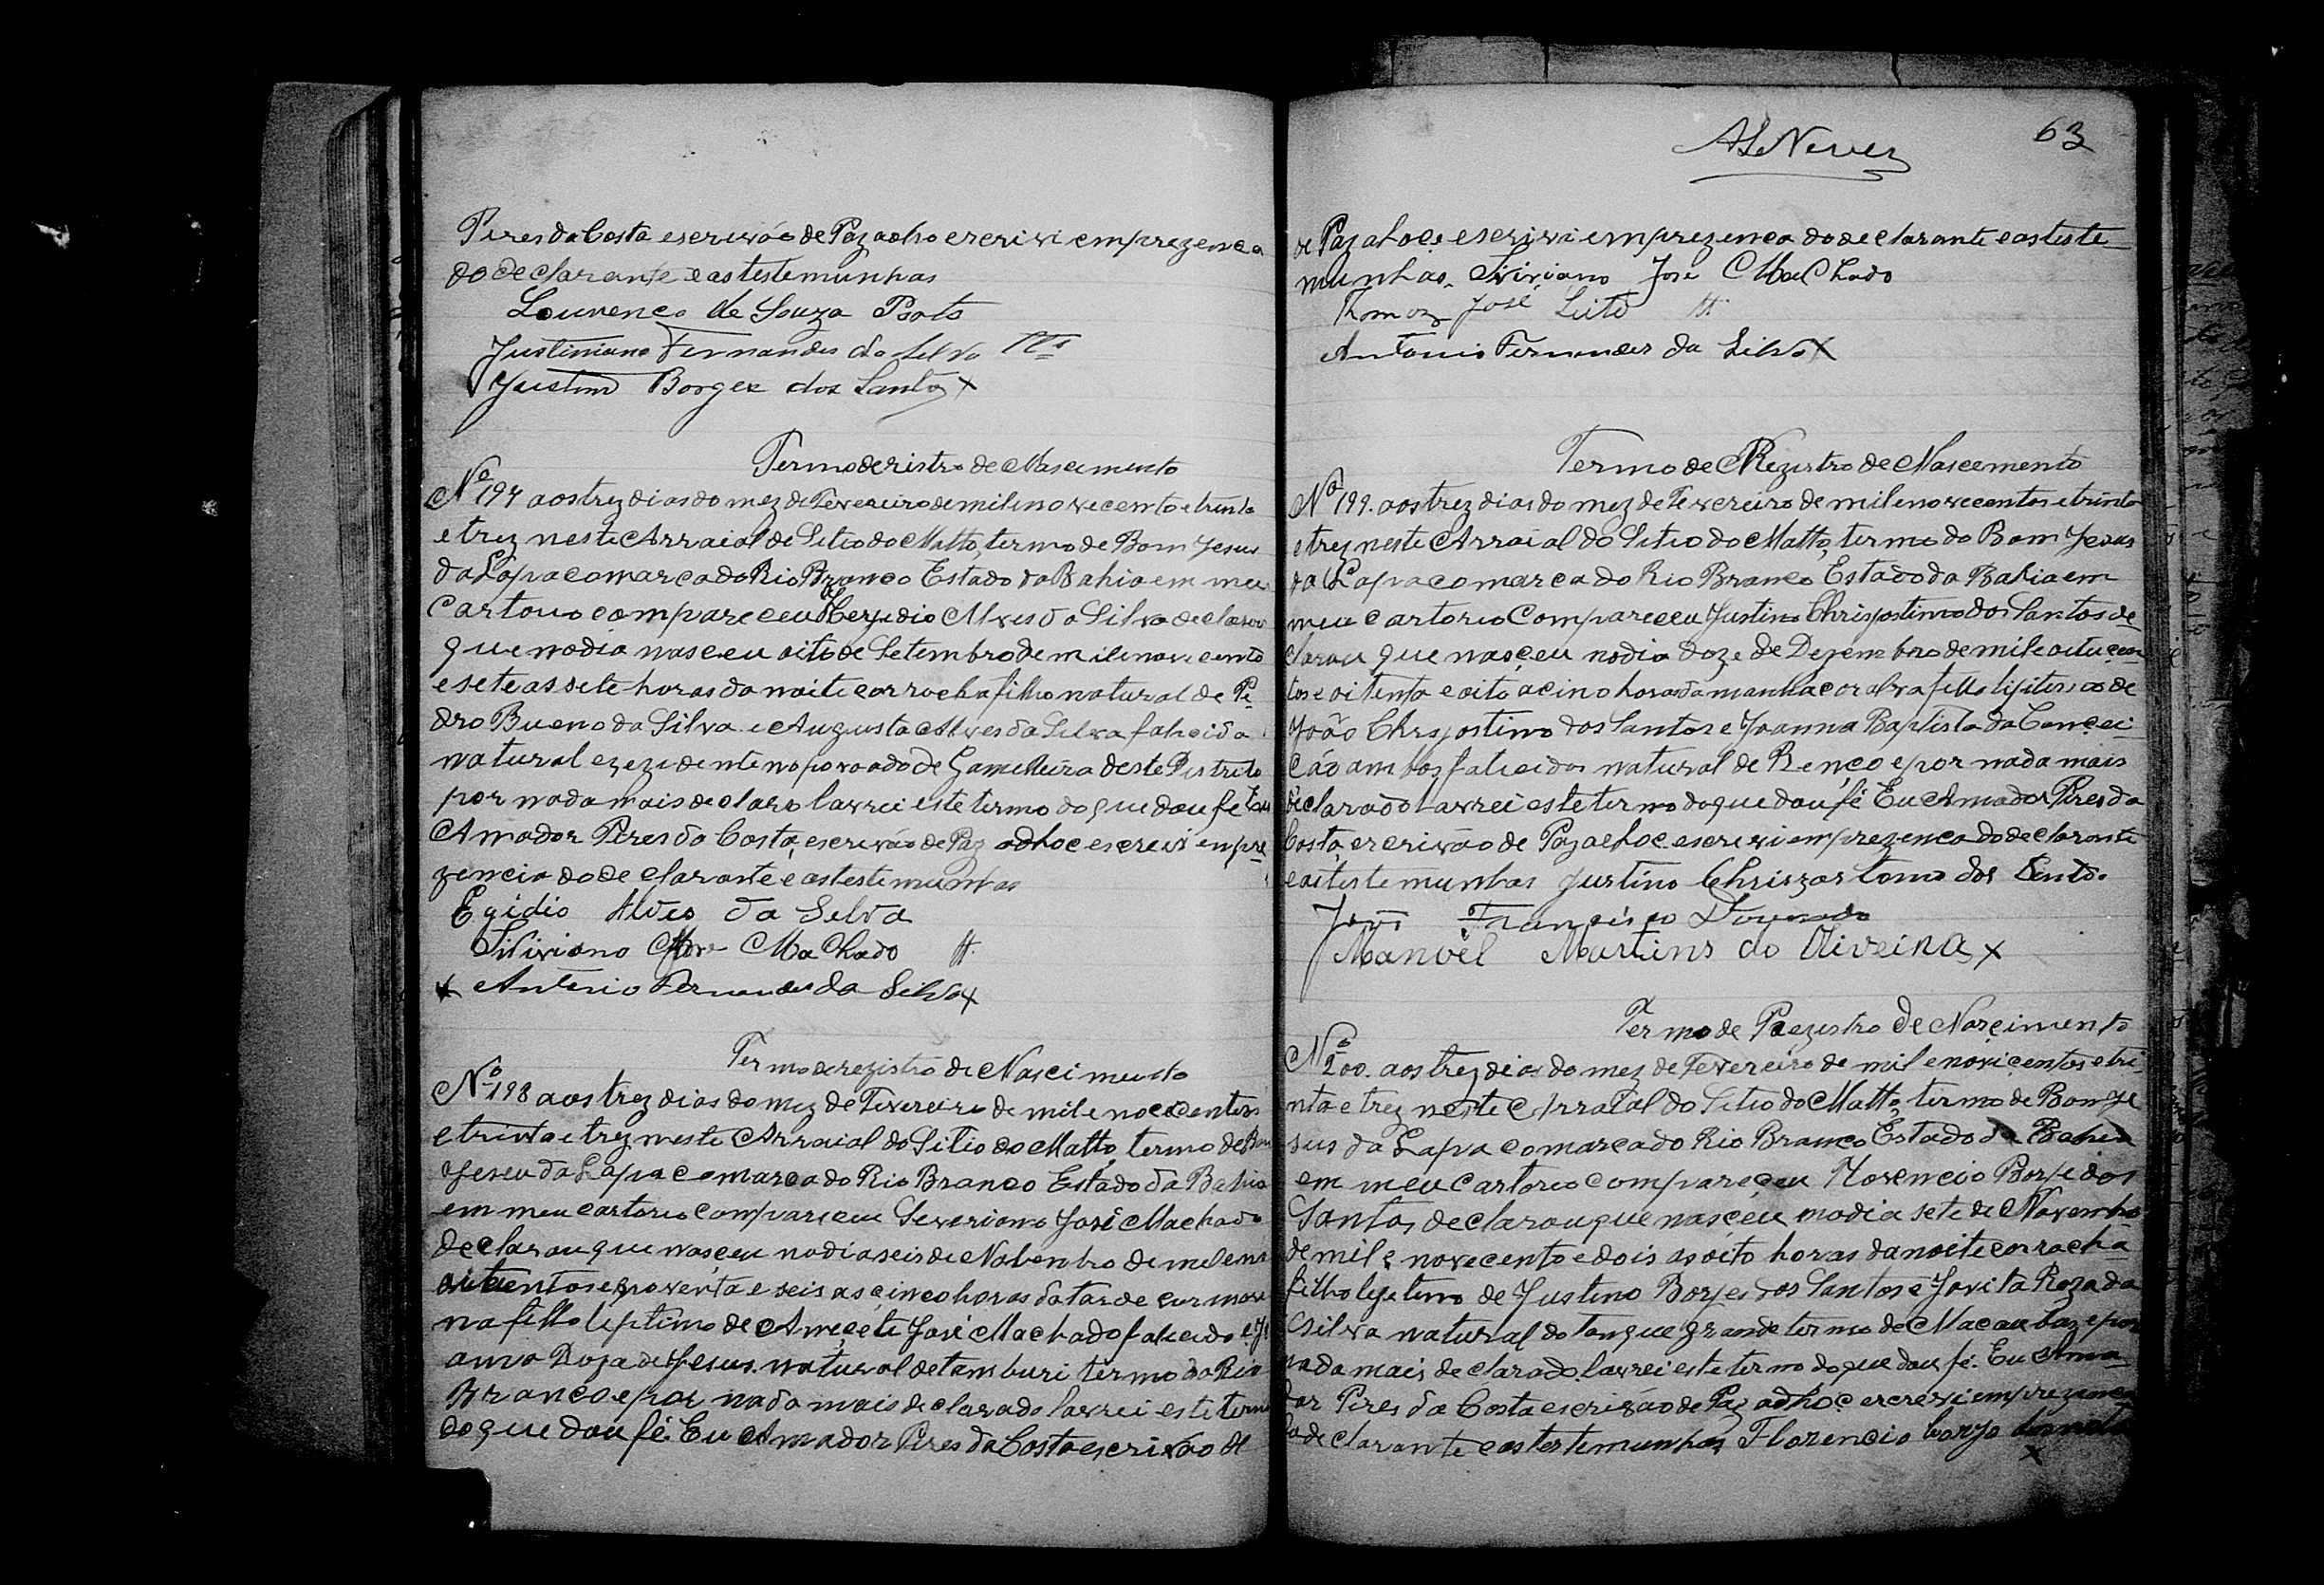 Pires da Costa escrivão de Paz adho escrivi em prezenca
do declarante e as testemunhas
Lourenco de Souza Porto
Justiniano Fernandes da Silva
Justino Borges dos Santos X
Termo de ristro de Nascimento
Nº 197 aos trez dias do mez de Fevereiro de mil e novecento e trinta
e trez neste Arraial de Sitio do Matto, termo de Bom Jesus
da Lapa comarca do Rio Branco Estado da Bahia em meu
Cartorio compareceu Alves da Silva declarou
que no dia nasceu oito de Setembro de mil e novecento
e sete as sete horas da noite cor rocha filho natural de Pe-
dro Bueno da Silva e Augusta Alves da Silva falicida
natural e rezidente no povoado de Gamelleira deste Distrito
por nada mais declaro lavrei este termo do que dou fé Eu
Amador Pires da Costa, escrivão de Paz adhoc escrevi em pre-
zencia do declarante e as testemunhas
Egidio Alves da Silva
Siviriano José Machado
X Antonio Fernandes da Silva X
Termo de registro de Nascimento
Nº 198 aos trez dias do mez de Fevereiro de mil e novecentos
e trinta e trez neste Arraial do Sitio do Matto, termo de Bom
Jesus da Lapa comarca do Rio Branco Estado da Bahia
em meu cartorio compareceu Severiano José Machado
declarou que nasceu no dia seis de Nobenbro de mil e
oitucentos e noventa e seis as cinco horas da tarde cor more
na filho legitimo de Aniceto José Machado falicido e Jo
anna Roza de Jesus. natural de tamburi termo do Rio
Branco e por nada mais declarado lavrei este termo
do que dou fé. Eu Amador Pires da Costa escrivão de
ALNeves
63
de Paz ahoc escrivi em prezenca do declarante e as teste-
munhas. Siviriano José Machado
Thomaz José Leite
Antonio Fernandes da Silva X
Termo de Rezistro de Nascemento
Nº 199. aos trez dias do mez de Fevereiro de mil e novecentos e trinta
e trez neste Arraial do Sitio do Matto, termo do Bom Jesus
da Lapa comarca do Rio Branco Estado da Bahia em
meu cartorio Compareceu Justino Chrispostimo dos Santos de
clarou que nasceu no dia doze de Dezembro de mil e oitucen
tos e oitenta e oito a cinc horas da manha cor alva filho ligitimo de
João Chrispostimo dos Santos e Joanna Baptista da Concei
ção ambos falicidos natural de e por nada mais
declarado lavrei este termo do que dou fé Eu Amador Pires da
Costa, escrivão de Paz adhoc escrevi em prezenca do declarante
e as testemunhas Justino Chriszostomo dos Santo.
João Francisco Dourado
Manoel Martins do Oliveira X
Termo de Rezistro de Nascimento
Nº 200. aos trez dias do mez de Fevereiro de mil e novicentos e tri
nta e trez neste Arraial do Sitio do Matto, termo de Bom Je
sus da Lapa comarca do Rio Branco Estado da Bahia
em meu cartorio compareceu Florencio Borje dos
Santos, declarou que nasceu no dia sete de Novenbro
de mil e novecento e dois as oito horas da noite cor rocha
filho legetimo de Justino Borjes dos Santos e Jovita Roza da
Silva natural do Tanque grande termo de Macaubas e por
nada mais declarado. lavrei este termo do que dou fé. Eu Ama-
dor Pires da Costa escrivão de Paz adhoc escrevi em prezenca
do declarante e as testemunhas Florencio borgo
X